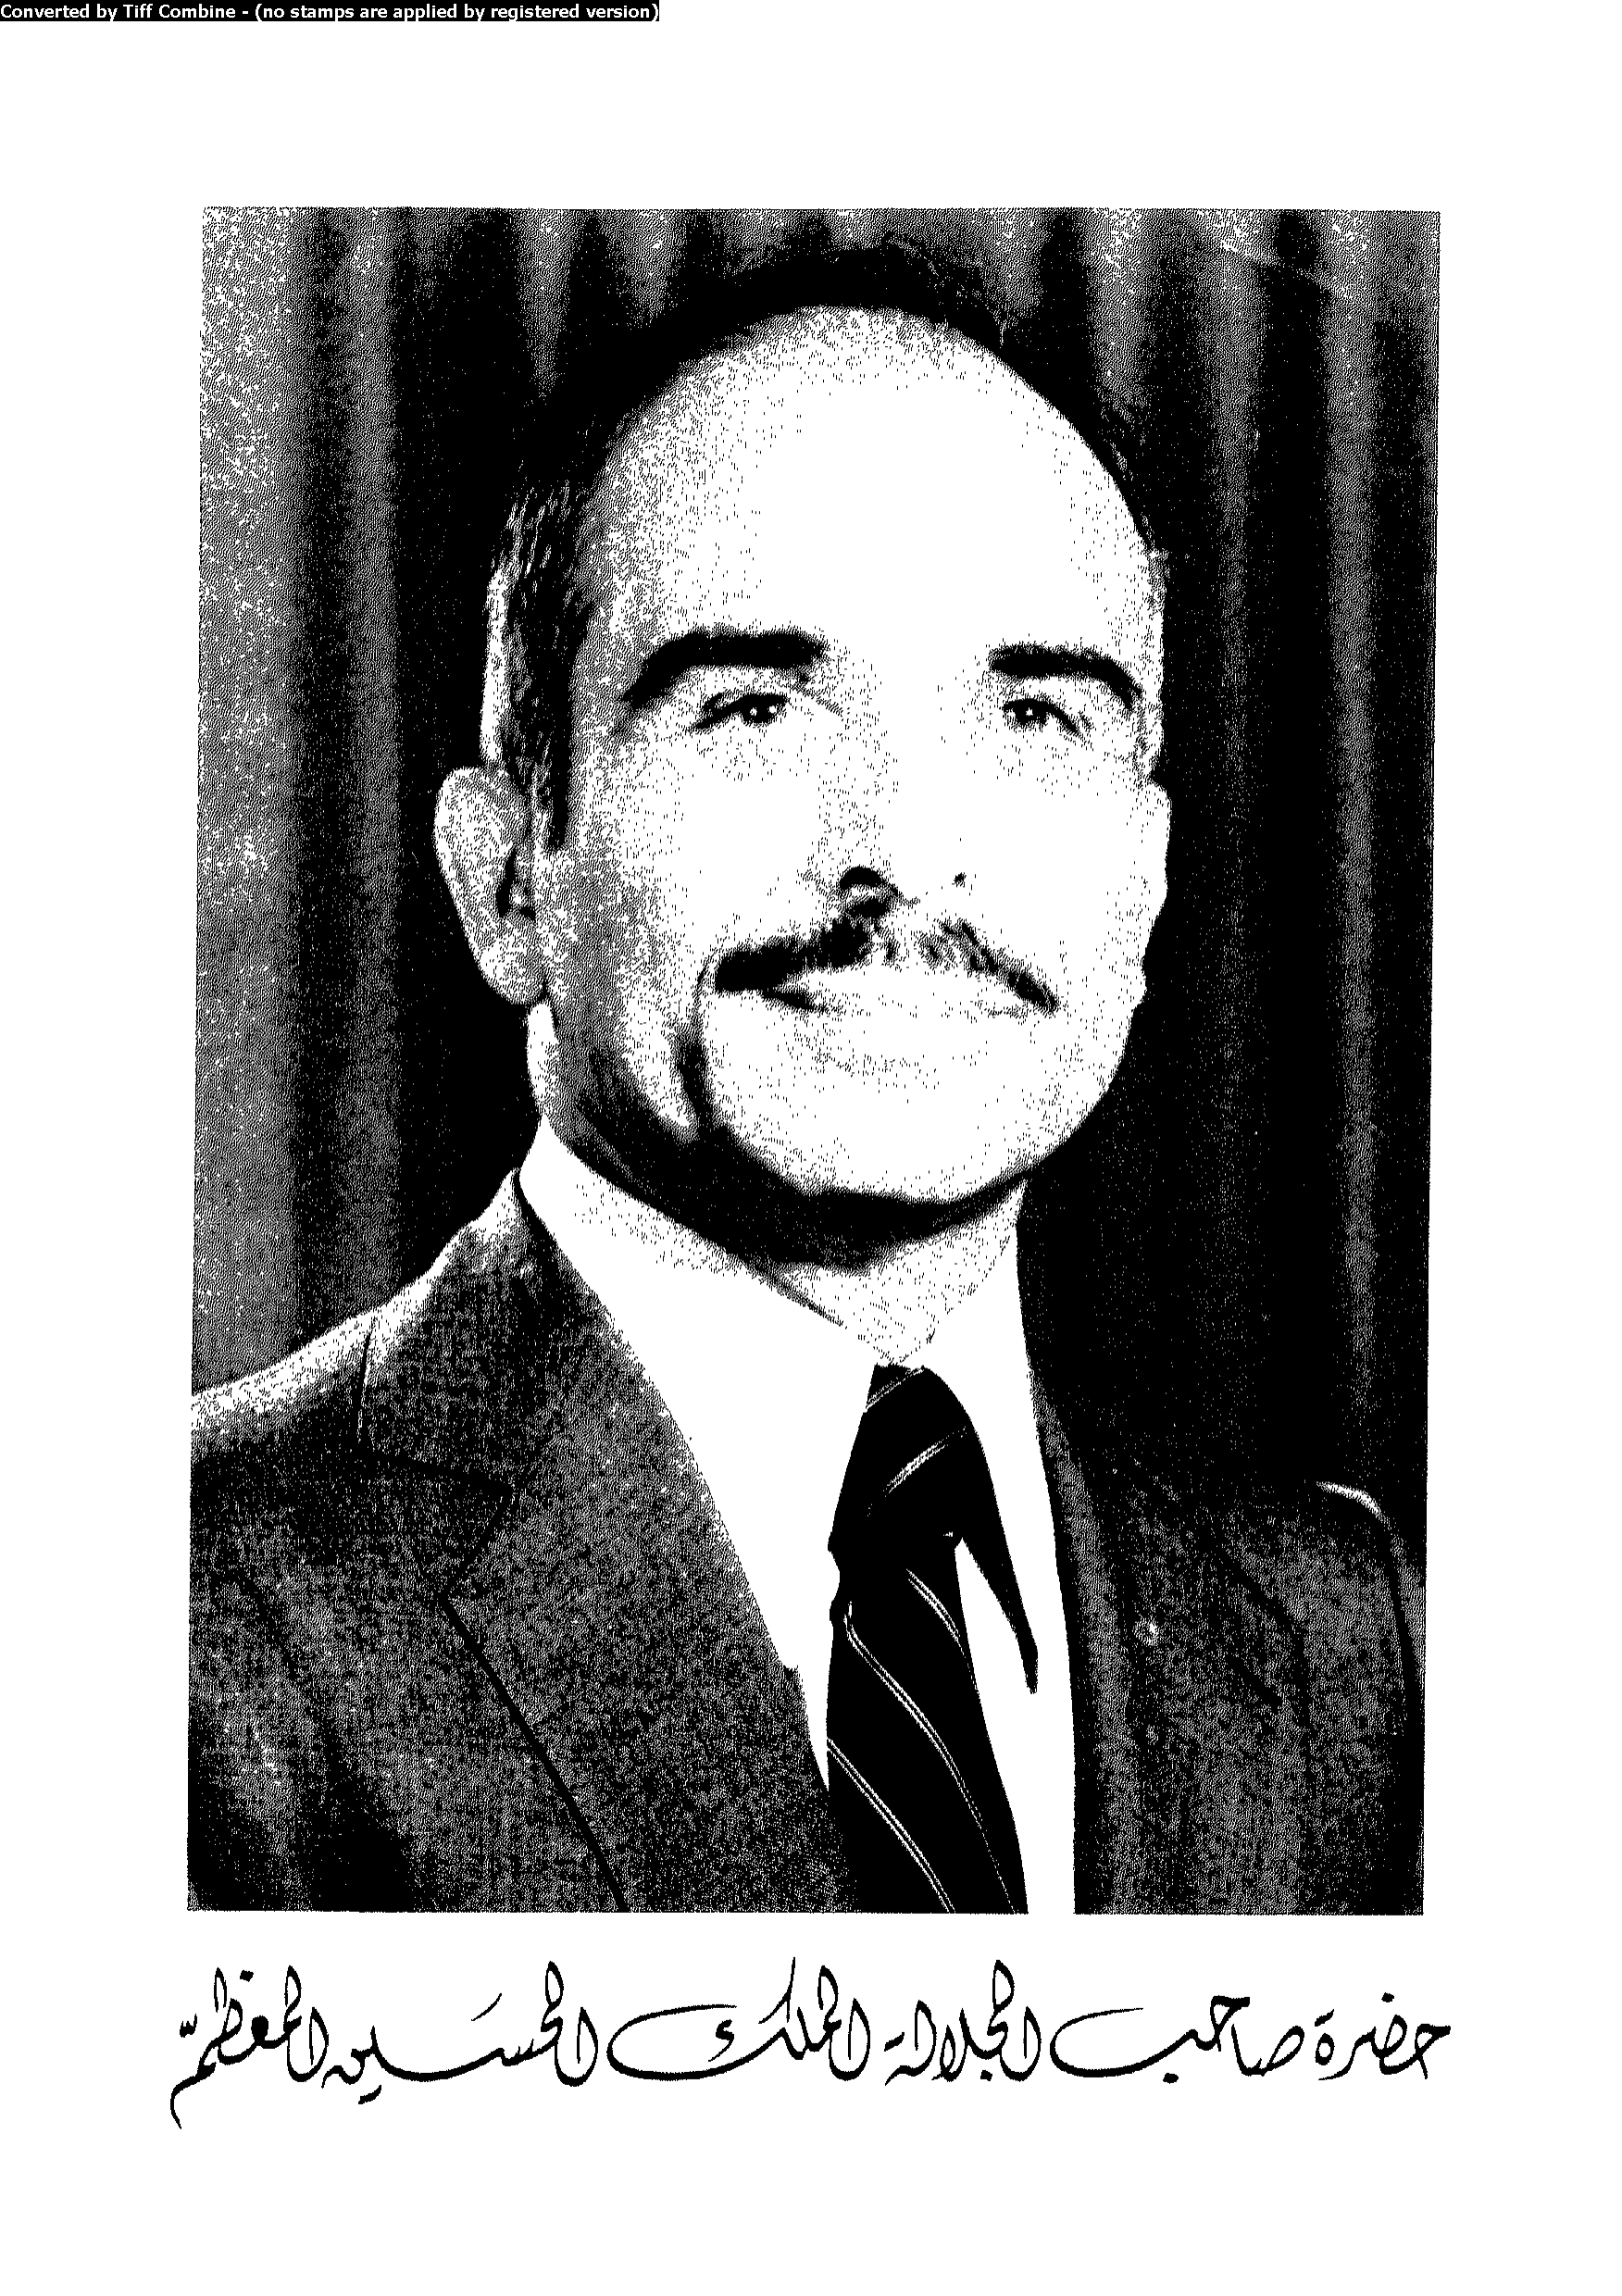 Converted by Tiff Combine - (no stamps are applied by registered version)
حضرة صاحب الجلالة الملك الحسين المعظمّ